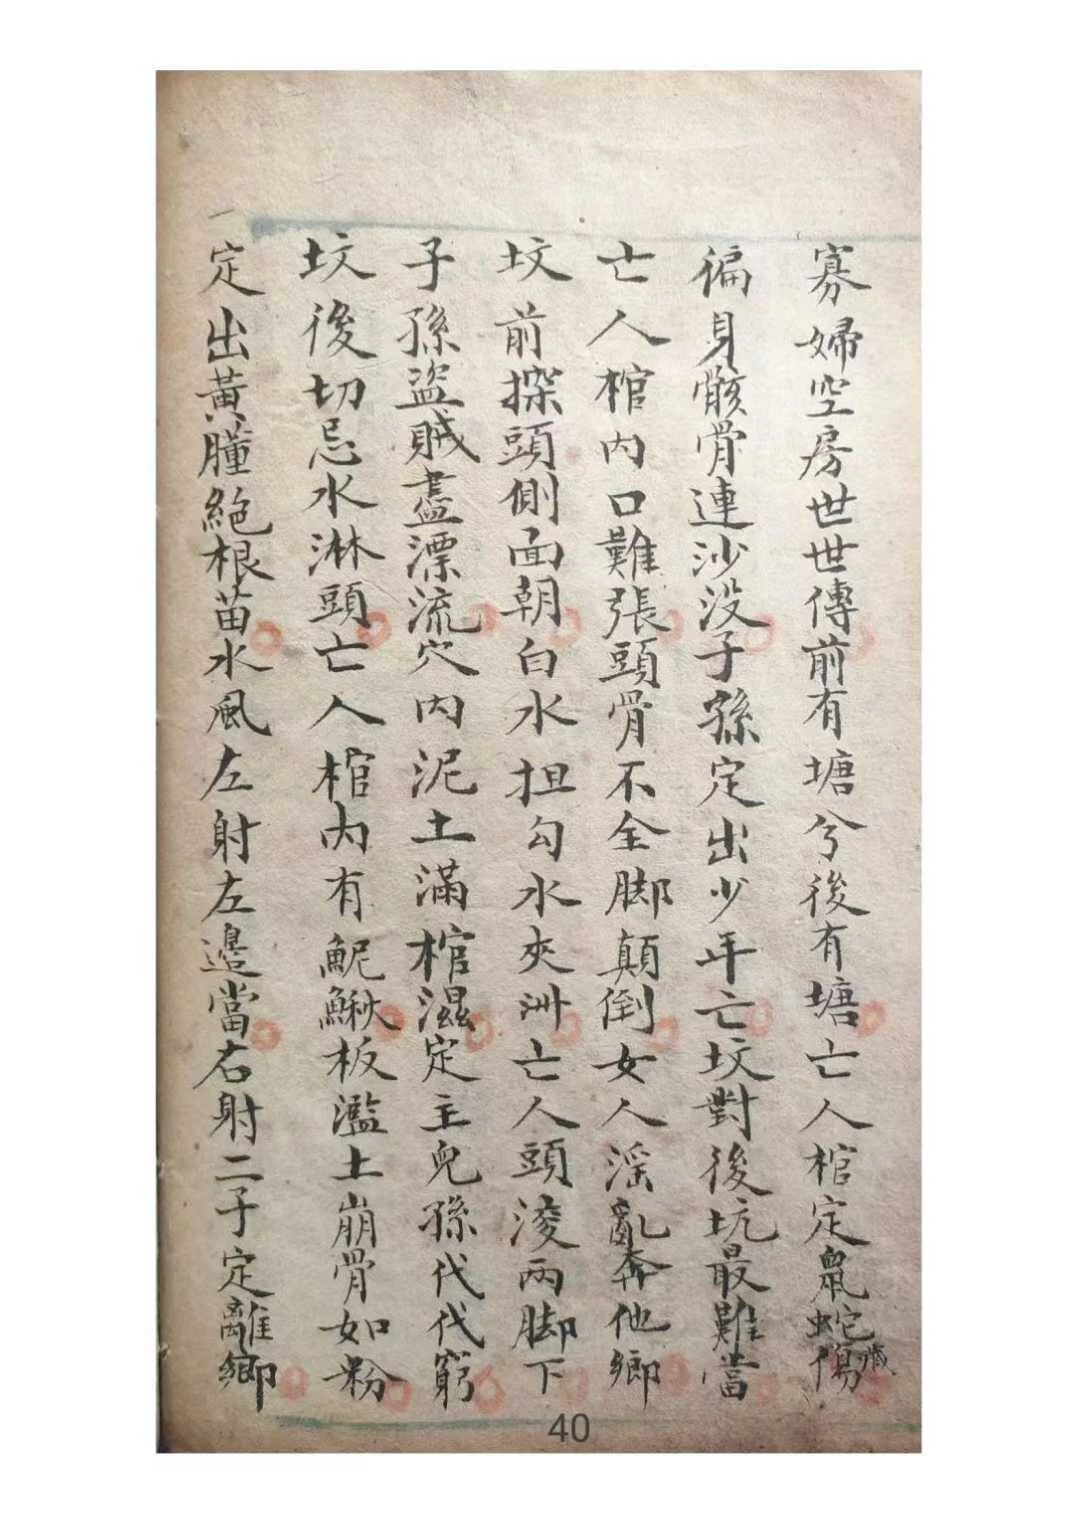 寡婦空房世世傳前有塘兮後有塘亡人棺定鼠蛇傷藏
徧身骸骨連沙没子孫定出少年亡坟對後坑最難當
亡人棺内口難張頭骨不全脚顛倒女人淫亂奔他鄉
坟前探頭側面朝白水担勾水夾洲亡人頭淩兩脚下
子孫盜賊盡漂流穴内泥土滿棺濕定主兒孫代代窮
坟後切忌水淋頭亡人棺内有鯢鰍板濫土崩骨如粉
一定出黃腫絕根苗水風左射左邉當右射二子定離鄉
40